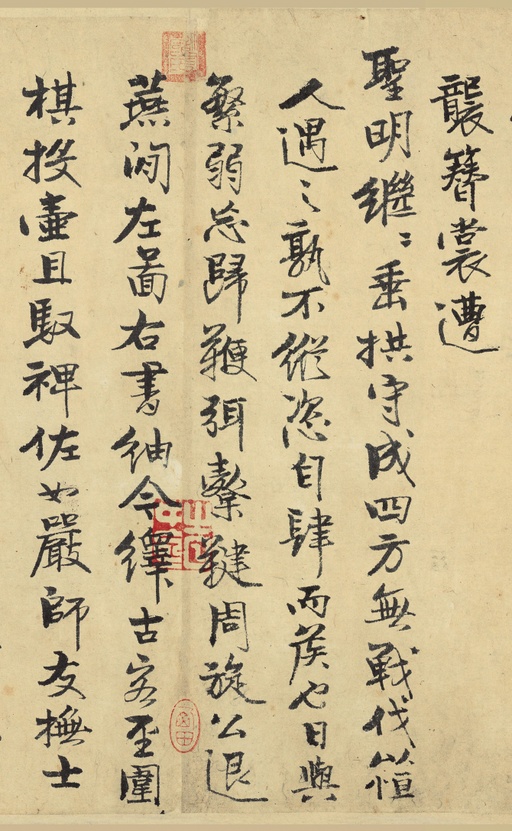 襲簪裳遭
聖明繼〻垂拱守成四方無戰伐
人遇之孰不縱恣自肆而侯也日與
繁弱忘歸鞭弭櫜鞬周旋公退
燕閒左圖右書紬今繹古客至圍
棋投壺且馭裨佐如嚴師友撫士